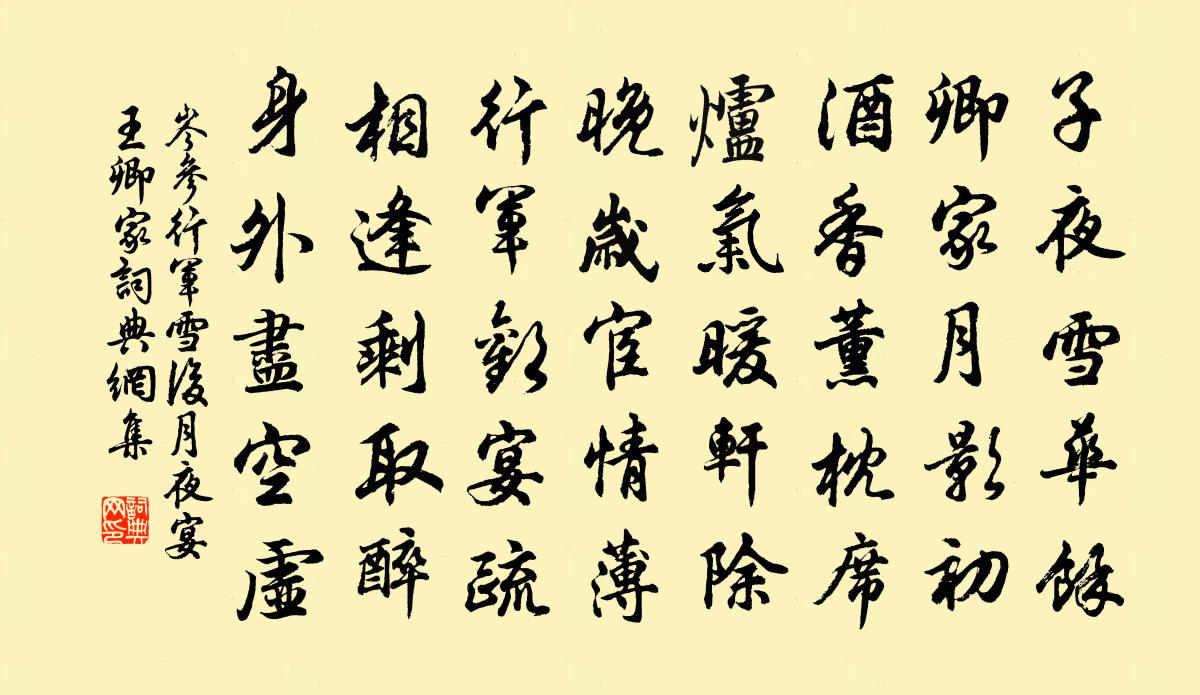 子夜雪華餘
卿家月影初
酒香薰枕席
爐氣暖軒除
晚歲宦情薄
行軍歡宴疏
相逢剩取醉
身外盡空虛
岑參行軍雪後月夜宴
王卿家詞典網集
詞典網印